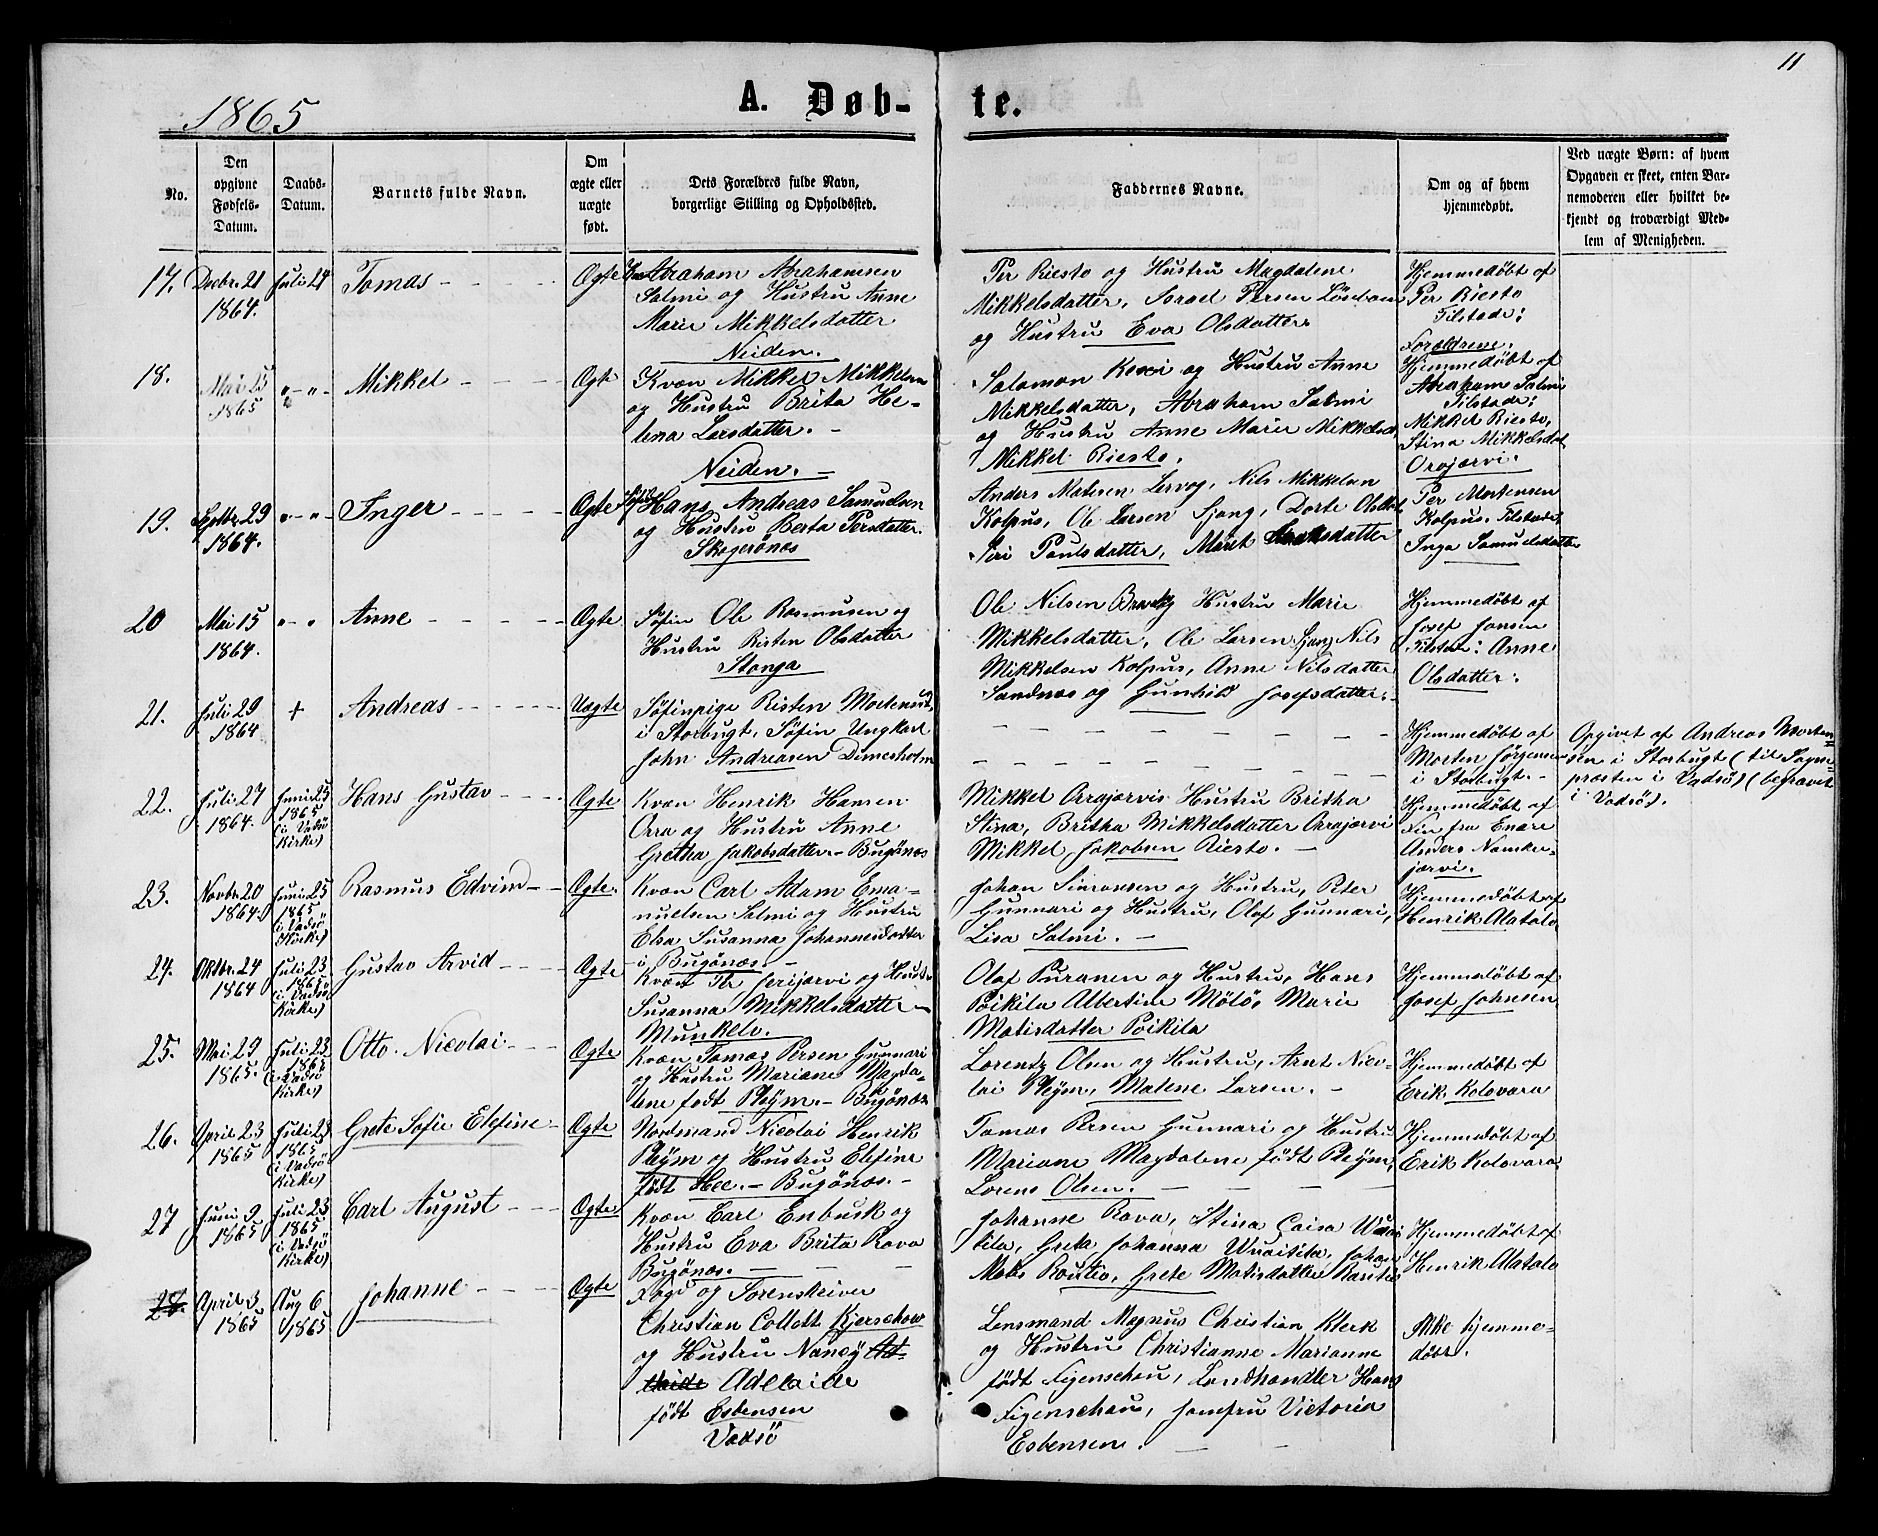 11
1865
A. Døb-
te.
No.
Den
opgivne
Fødsels-
Datum.
Daabs-
Datum.
Barnets fulde Navn.
Om
ægte eller
uægte
født.
Dets Forældres fulde Navn,
borgerlige Stilling og Opholdssted.
Faddernes Navne.
Om og af hvem
hjemmedøbt.
Ved uægte Børn: af hvem
Opgaven er skeet, enten Bar-
nemoderen eller hvilket be-
kjendt og troværdigt Med-
lem af Menigheden.
17.
Decbr. 21
1864.
Juli 24
Tomas
Ægte
Abraham Abrahamsen
Salmi og Hustru Anne
Marie Mikkelsdatter
Neiden.
Per Riesto og Hustru Magdalene
Mikkelsdatter, Israel Persen
og Hustru Eva Olsdatter.
Hjemmedøbt af
Per Riesto
Tilstede:
Forældrene.
18.
Mai 25
1865
" - " -
Mikkel
Ægte
Kvæn Mikkel Mikkelsen
og Hustru Brita He-
lena Larsdatter. -
Neiden. -
Salomon Koxi og Hustru Anne
Mikkelsdatter, Abraham Salmi
og Hustru Anne Marie Mikkelsd.
Mikkel Riesto.
Hjemmedøbt af
Abraham Salmi
Tilstede:
Mikkel Riesto,
Stina Mikkelsdat
Orajærvi.
19.
Septbr. 29
1864.
" - " -
Inger
Ægte
Hans Andreas Samuelsen
og Hustru Berta Persdatter.
Skogerönæs
Anders Matisen Lervog, Nils Mikkelsen
Kolpus, Ole Larsen Sjang, Dorte Olsdat
Siri Paulsdatter, Maret
Per Mortensen
Kolpus. Tilstede:
Inga Samuelsdatter
20
Mai 15
1864.
" - "
Anne
Ægte
Söfin Ole Rasmusen og
Hustru Risten Olsdatter
Stonga
Ole Nilsen Hustru Marie
Mikkelsdatter, Ole Larsen Sjang Nils
Mikkelsen Kolpus, Anne Nilsdatter
Sandnæs og Gunhild Josefsdatter.
Hjemmedøbt af
Josef Jonsen
Tilstede: Anne
Olsdatter.
21.
Juli 29
1864
+
Andreas
Uægte
Söfinpige Risten Mortensd.
i Storbugt, Söfin Ungkarl
John Andreasen Dimesholm
Hjemmedøbt af
Morten Jörgensen
i Storbugt. -
Opgivet af Andreas Morten-
sen i Storbugt (til Sogne-
præsten i Vadsø) (begravet
i Vadsø).
22.
Juli 27
1864.
Juni 25
1865
(i Vadsö
Kirke)
Hans Gustav
Ægte
Kvæn Henrik Hansen
Orra og Hustru Anne
Gretha Jakobsdatter - Bugönæs
Mikkel Orrajærvis Hustru Britha
Stina, Britha Mikkelsdatter Orrajærvi
Mikkel Jakobsen Riesto. -
Hjemmedøbt af
Fin fra Enare
Anders Namker-
jærvi.
23.
Novbr. 20
1864.
Juni 25
1865
(i Vadsö
Kirke)
Rasmus Edvind
Ægte.
Kvæn Carl Adam Ema-
nuelsen Salmi og Hustru
Elsa Susanna Johannesdatter
i Bugönæs. -
Johan Simonsen og Hustru, Peter
Gunnari og Hustru, Olof Gunnari,
Lisa Salmi. -
Hjemmedøbt af
Henrik Alatalo
24.
Oktbr. 24
1864
Juli 23
1865
(i Vadsö
Kirke)
Gustav Arvid
Ægte
Kvæn Per Jerijærvi og Hustr.
Susanna Mikkelsdatter -
Munkelv.
Olof Puranen og Hustru, Hans
Poikila Albertine Mölö, Marie
Matisdatter Poikila
Hjemmedøbt af
Josef Johnsen
25.
Mai 29
1865.
Juli 23
1865
(i Vadsö
Kirke)
Otto Nicolai
Ægte
Kvæn Tomas Persen Gunnari
og Hustru Mariane Magda-
lene født Pleÿm. - Bugönæs
Lorentz Olsen og Hustru, Arnt Nico-
lai Pleÿm, Malene Larsen. -
Hjemmedøbt af
Erik Kolovara
26.
April 23
1865
Juli 23
1865
(i Vadsö
Kirke)
Grete Sofie Elefine
Ægte
Nordmand Nicolai Henrik
Pleÿm og Hustru Elefine
født Hee. - Bugönæs. -
Tomas Persen Gunnari og Hustru
Mariane Magdalene født Pleÿm,
Lorens Olsen.
Hjemmedøbt af
Erik Kolovara
27
Juni 9
1865
Juli 23
1865
(i Vadsö
Kirke)
Carl August
Ægte
Kvæn Carl Enbusk og
Hustru Eva Brita Rova
Bugönæs. -
Johanne Rova, Stina Caisa
tila, Greta Johanna Johan
Mats Routio, Grete Matisdatter Routio
Hjemmedøbt af
Henrik Alatalo
28.
April 3
1865
Aug 6
1865
Johanne
Ægte
Foged og Sorenskriver
Christian Collett Kjerschow
og Hustru Nancy Ad-
elaide Adelaide
født Esbensen
Vadsö
Lensmand Magnus Christian Klerk
og Hustru Christianne Marianne
født Figenschau, Landhandler Hans
Figenschau, Jomfru Victoria
Esbensen.
Ikke hjemme-
døbt.